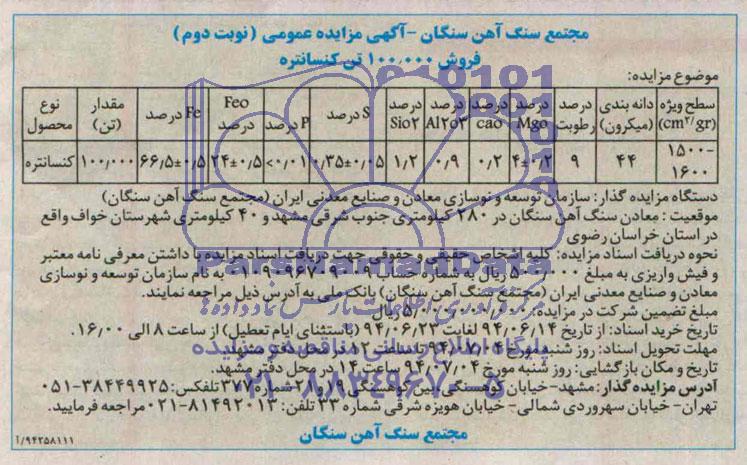 مجتمع سنگ آهن سنگان -آگهی مزایده عمومی (نوبت دوم)
فروش ۱۰۰٫۰۰۰ تن کنسانتره
موضوع مزایده:
نوع محصول | مقدار (تن) | Fe درصد | Feo درصد | P درصد | S درصد | درصد Sio۲ | درصد Al۲o۳ | درصد cao | درصد Mgo | درصد رطوبت | دانه بندی (میکرون) | سطح ویژه (cm۲/gr)
کنسانتره | ۱۰۰٫۰۰۰ | ۶۶٫۵±۰٫۵ | ۲۴±۰٫۵ | <۰٫۰۱ | ۰٫۳۵±۰٫۰۵ | ۱٫۲ | ۰٫۹ | ۰٫۲ | ۴±۰٫۲ | ۹ | ۴۴ | ۱۵۰۰-۱۶۰۰
دستگاه مزایده گذار: سازمان توسعه و نوسازی معادن و صنایع معدنی ایران (مجتمع سنگ آهن سنگان)
موقعیت: معادن سنگ آهن سنگان در ۲۸۰ کیلومتری جنوب شرقی مشهد و ۴۰ کیلومتری شهرستان خواف واقع
در استان خراسان رضوی
نحوه دریافت اسناد مزایده: کلیه اشخاص حقیقی و حقوقی جهت دریافت اسناد مزایده با داشتن معرفی نامه معتبر
و فیش واریزی به مبلغ ریال به شماره حساب به نام سازمان توسعه و نوسازی
معادن و صنایع معدنی ایران (مجتمع سنگ آهن سنگان) بانک ملی به آدرس ذیل مراجعه نمایند.
مبلغ تضمین شرکت در مزایده: ریال
تاریخ خرید اسناد: از تاریخ ۹۴٫۰۶٫۱۴ لغایت ۹۴٫۰۶٫۲۳ (باستثنای ایام تعطیل) از ساعت ۸ الی ۱۶٫۰۰.
مهلت تحویل اسناد: روز شنبه مورخ ۹۴٫۰۷٫۰۴ تا ساعت ۱۲ در محل دفتر مشهد.
تاریخ و مکان بازگشایی: روز شنبه مورخ ۹۴٫۰۷٫۰۴ ساعت ۱۴ در محل دفتر مشهد.
آدرس مزایده گذار: مشهد-خیابان کوهسنگی بین کوهسنگی ۱۹ و ۲۱ شماره ۳۷۷ تلفکس: ۳۸۴۴۹۹۲۵-۰۵۱
تهران- خیابان سهروردی شمالی- خیابان هویزه شرقی شماره ۳۳ تلفن: ۸۱۴۹۲۰۱۳-۰۲۱ مراجعه فرمایید.
مجتمع سنگ آهن سنگان
۹۴۲۵۸۱۱۱/آ
ParsNamadData
پایگاه اطلاع رسانی مناقصه و مزایده
۰۲۱-۸۸۳۴۹۶۷۰-۵